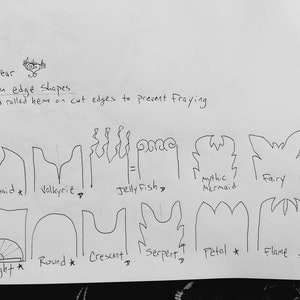 ear
edge shapes
rolled hem on cut edges to prevent fraying
maid Valkyrie Jellyfish = mythic mermaid Fairy
ght Round Crescent Serpent Petal Flame